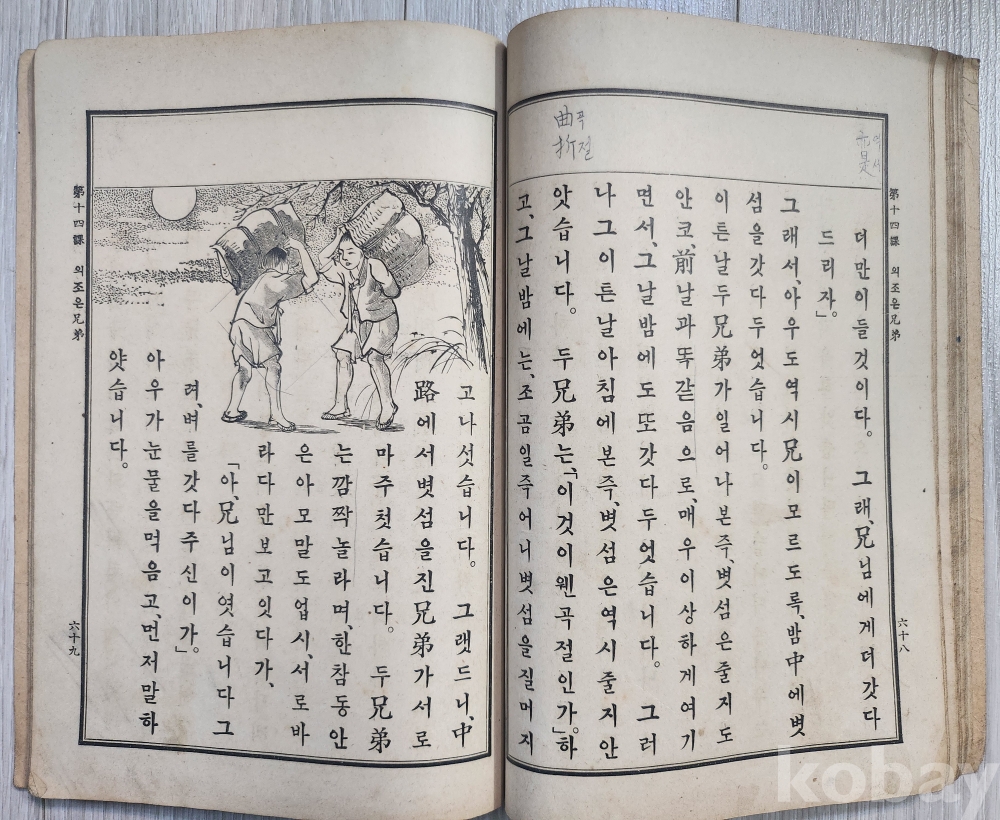 亦是 역시
曲折 곡절
第十四課 의조은兄弟
六十八
더만이들것이다。 그래,兄님에게더갓다
드리자。」
그래서,아우도역시兄이모르도록,밤中에볏
섬을갓다두엇습니다。
이튼날두兄弟가일어나본즉,볏섬은줄지도
안코,前날과똑갇음으로,매우이상하게여기
면서,그날밤에도또갓다두엇습니다。 그러
나그이튼날아침에본즉,볏섬은역시줄지안
앗습니다。 두兄弟는,「이것이웬곡절인가。」하
고,그날밤에는,조곰일즉어니볏섬을질머지
고나섯습니다。 그랫드니,中
路에서볏섬을진兄弟가서로
마주첫습니다。 두兄弟
는깜짝놀라며,한참동안
은아모말도업시,서로바
라다만보고잇다가,
「아,兄님이엿습니다그
려,벼를갓다주신이가。」
아우가눈물을먹음고,먼저말하
얏습니다。
第十四課 의조은兄弟
六十九
kobay